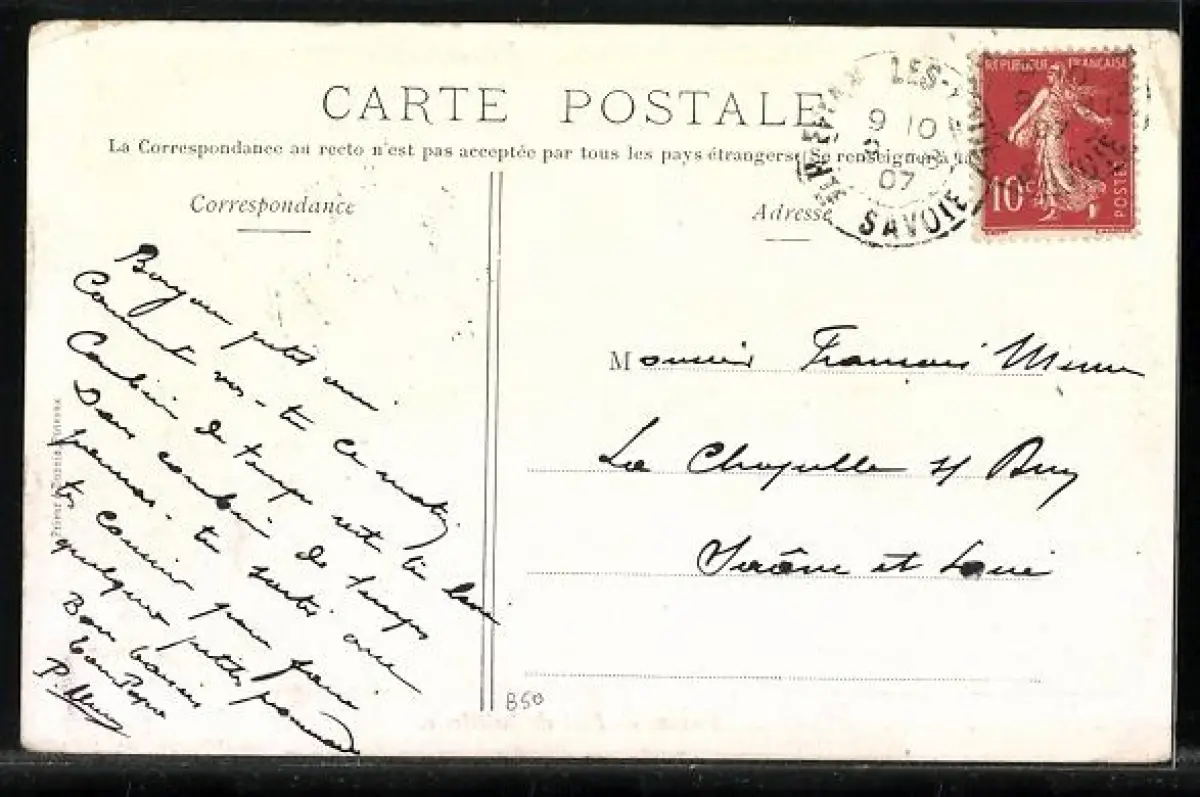 CARTE POSTALE
La Correspondance au recto n'est pas acceptée par tous les pays étrangers. Se renseigner à la
Correspondance
Adresse
LES-
9 10
07
SAVOIE
REPUBLIQUE FRANÇAISE
10 c
POSTES
Bonjour petit ami
Comment vas-tu ce matin
Combien de temps reste tu
Dans combien de temps
penses-tu sortir avec
tes cousins pour faire
quelques petites promenades
Bon baisers
Ton Papa
P.
Monsieur François
La Chapelle s/
Saône et Loire
850